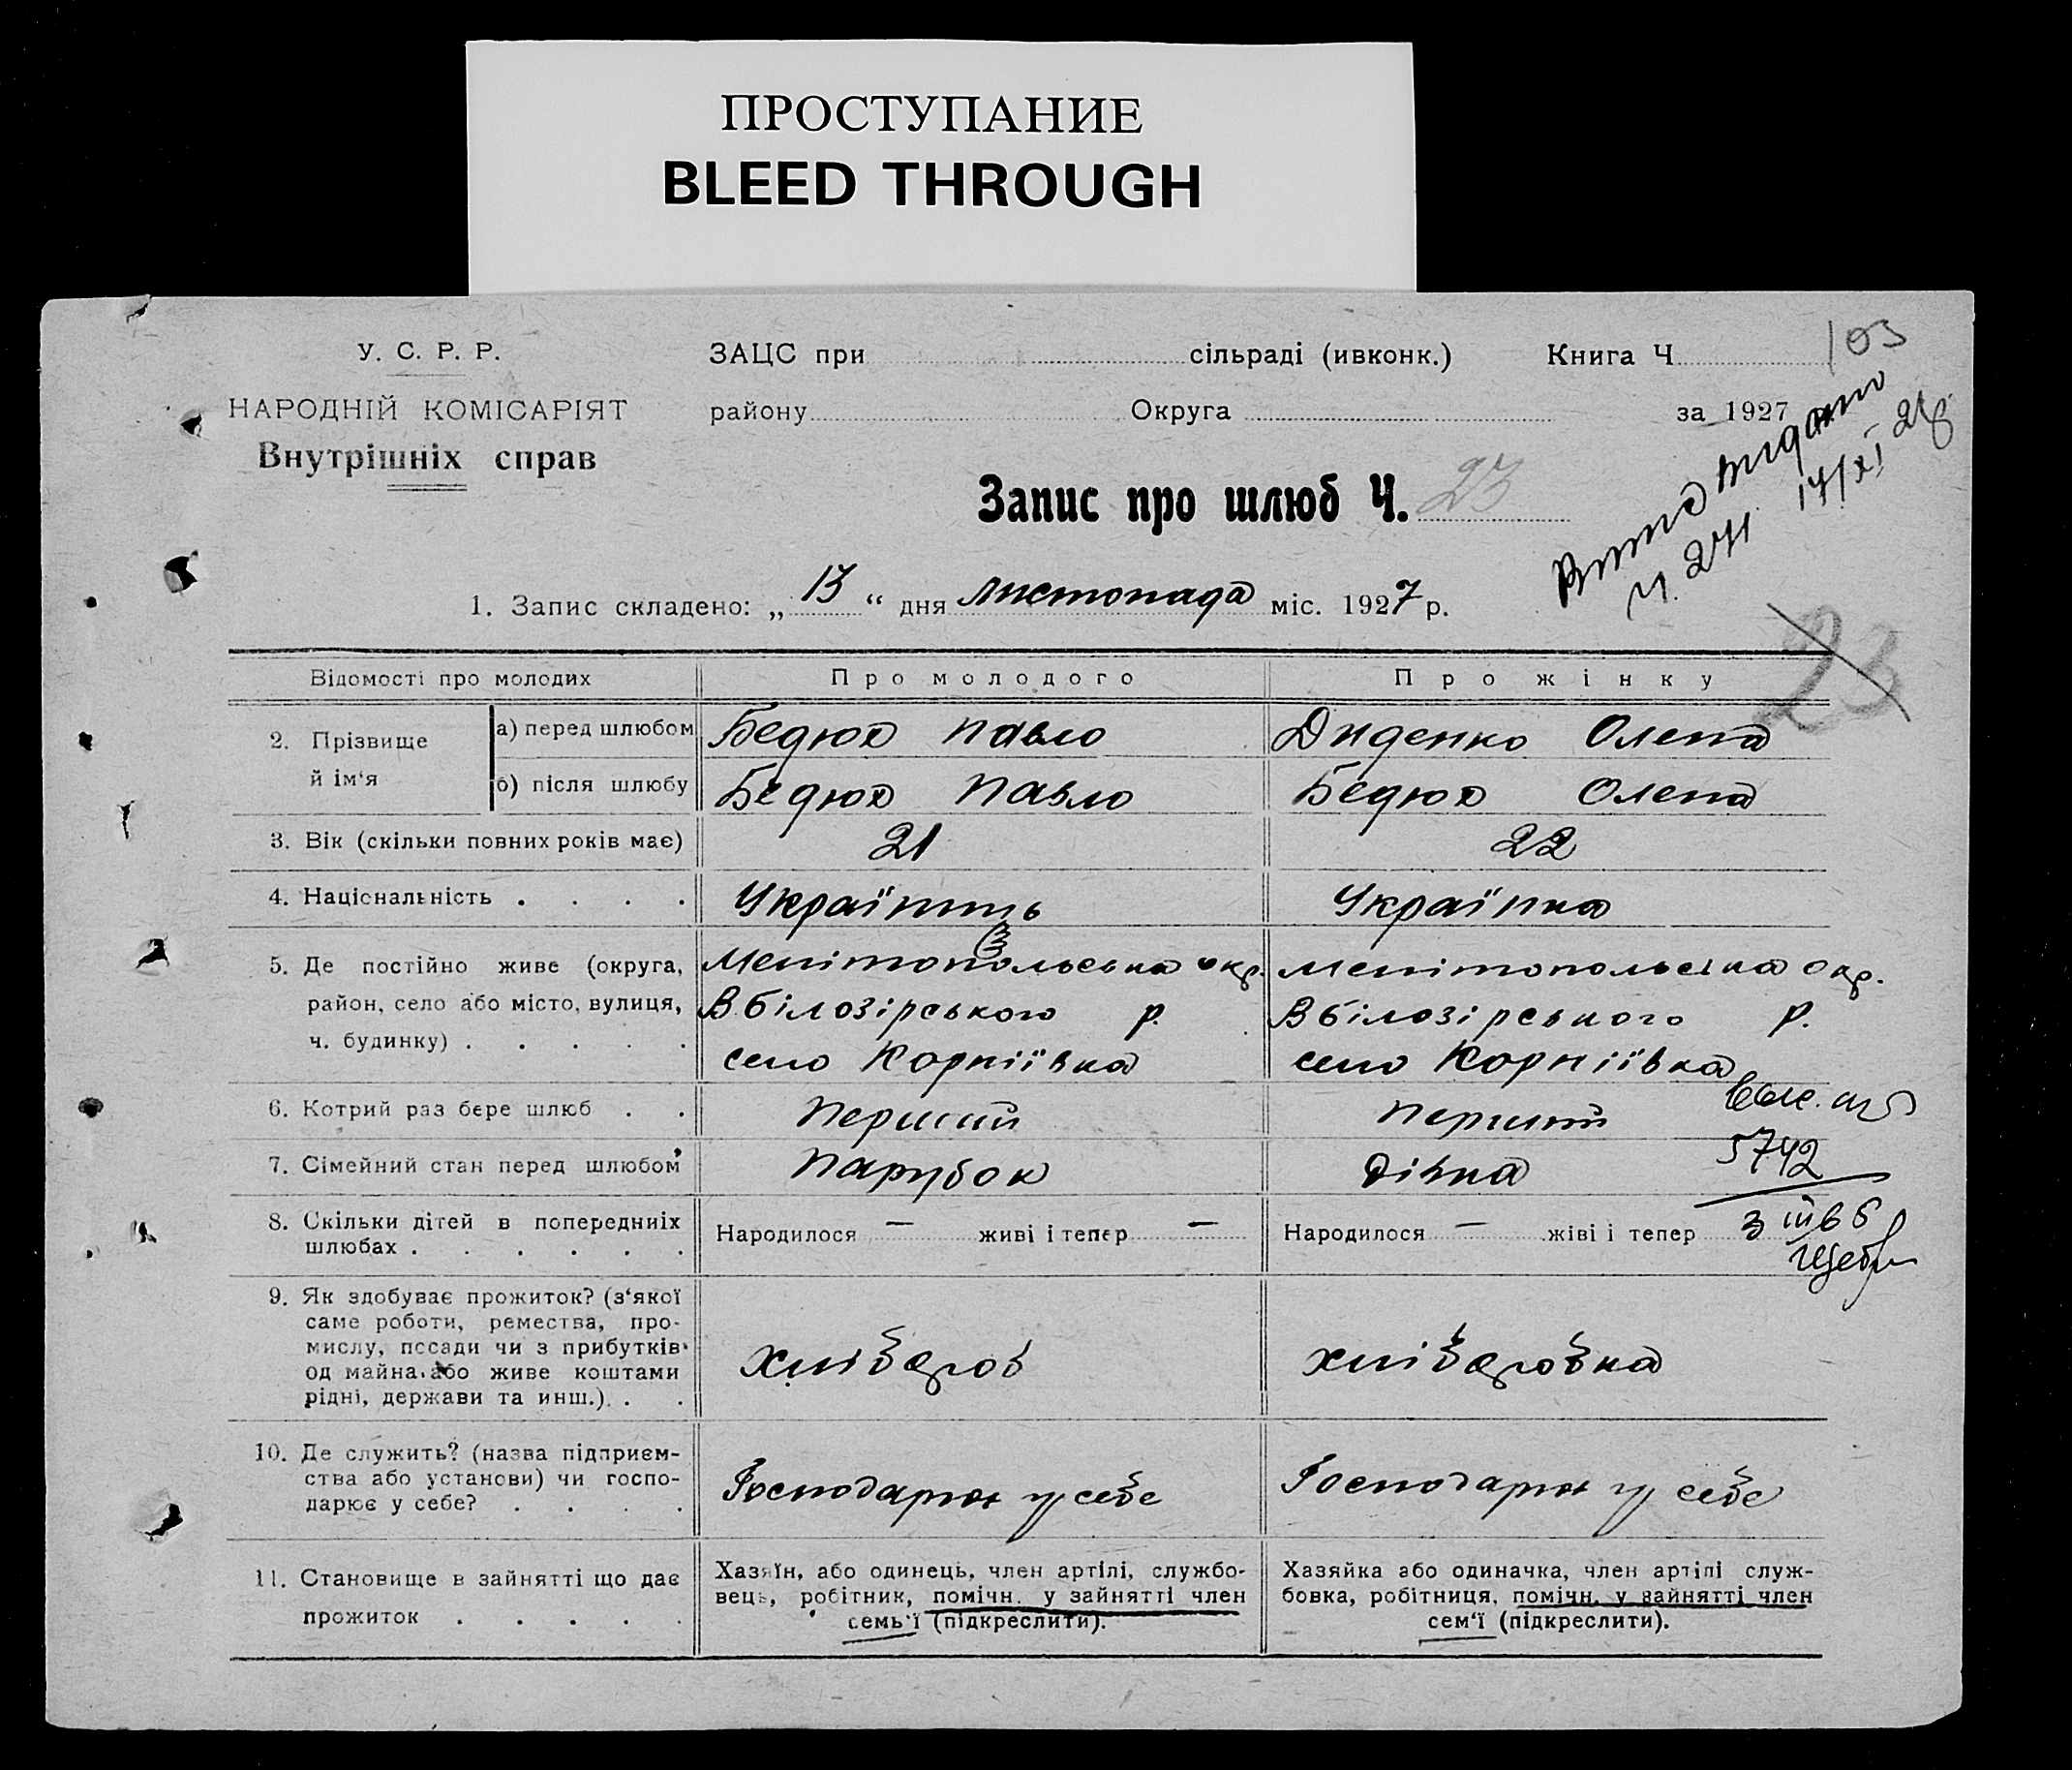 ПРОСТУПАНИЕ
BLEED THROUGH
У. С. Р. Р.
НАРОДНІЙ КОМІСАРІЯТ
Внутрішніх справ
ЗАЦС при сільраді (ивконк.) Книга Ч
103
району Округа за 1927
Запис про шлюб Ч. 23
Ч. 271 17/XI
1. Запис складено: „ 13 “ дня листопада міс. 1927 р.
23
Відомості про молодих
Про молодого
Про жінку
2. Прізвище й ім‘я
а) перед шлюбом
Бедюх Павло
Диденко Олена
б) після шлюбу
Бедюх Павло
Бедюх Олена
3. Вік (скільки повних років має)
21
22
4. Національність . . . .
Українець
Українка
5. Де постійно живе (округа,
район, село або місто, вулиця,
ч. будинку) . . . . .
Мелітопольська окр.
В білозірського р.
село Корніївка
Мелітопольська окр.
В білозірського р.
село Корніївка
6. Котрий раз бере шлюб . .
Перший
Перший
7. Сімейний стан перед шлюбом
Парубок
Дівка
5742
8. Скільки дітей в попередниіх
шлюбах . . . . . .
Народилося — живі і тепер —
Народилося — жіві і тепер
9. Як здобуває прожиток? (з‘якої
саме роботи, ремества, про-
мислу, песади чи з прибутків
од майна, або живе коштами
рідні, держави та инш.). . .
Хлібороб
Хліборобка
10. Де служить? (назва підприєм-
ства або установи) чи госпо-
дарює у себе? . . . .
Господарює у себе
Господарює у себе
11. Становище в зайнятті що дає
прожиток . . . . .
Хазяїн, або одинець, член артілі, службо-
вець, робітник, помічн. у зайнятті член
семь‘ї (підкреслити).
Хазяйка або одиначка, член артілі служ-
бовка, робітниця, помічн. у зайнятті член
сем‘ї (підкреслити).